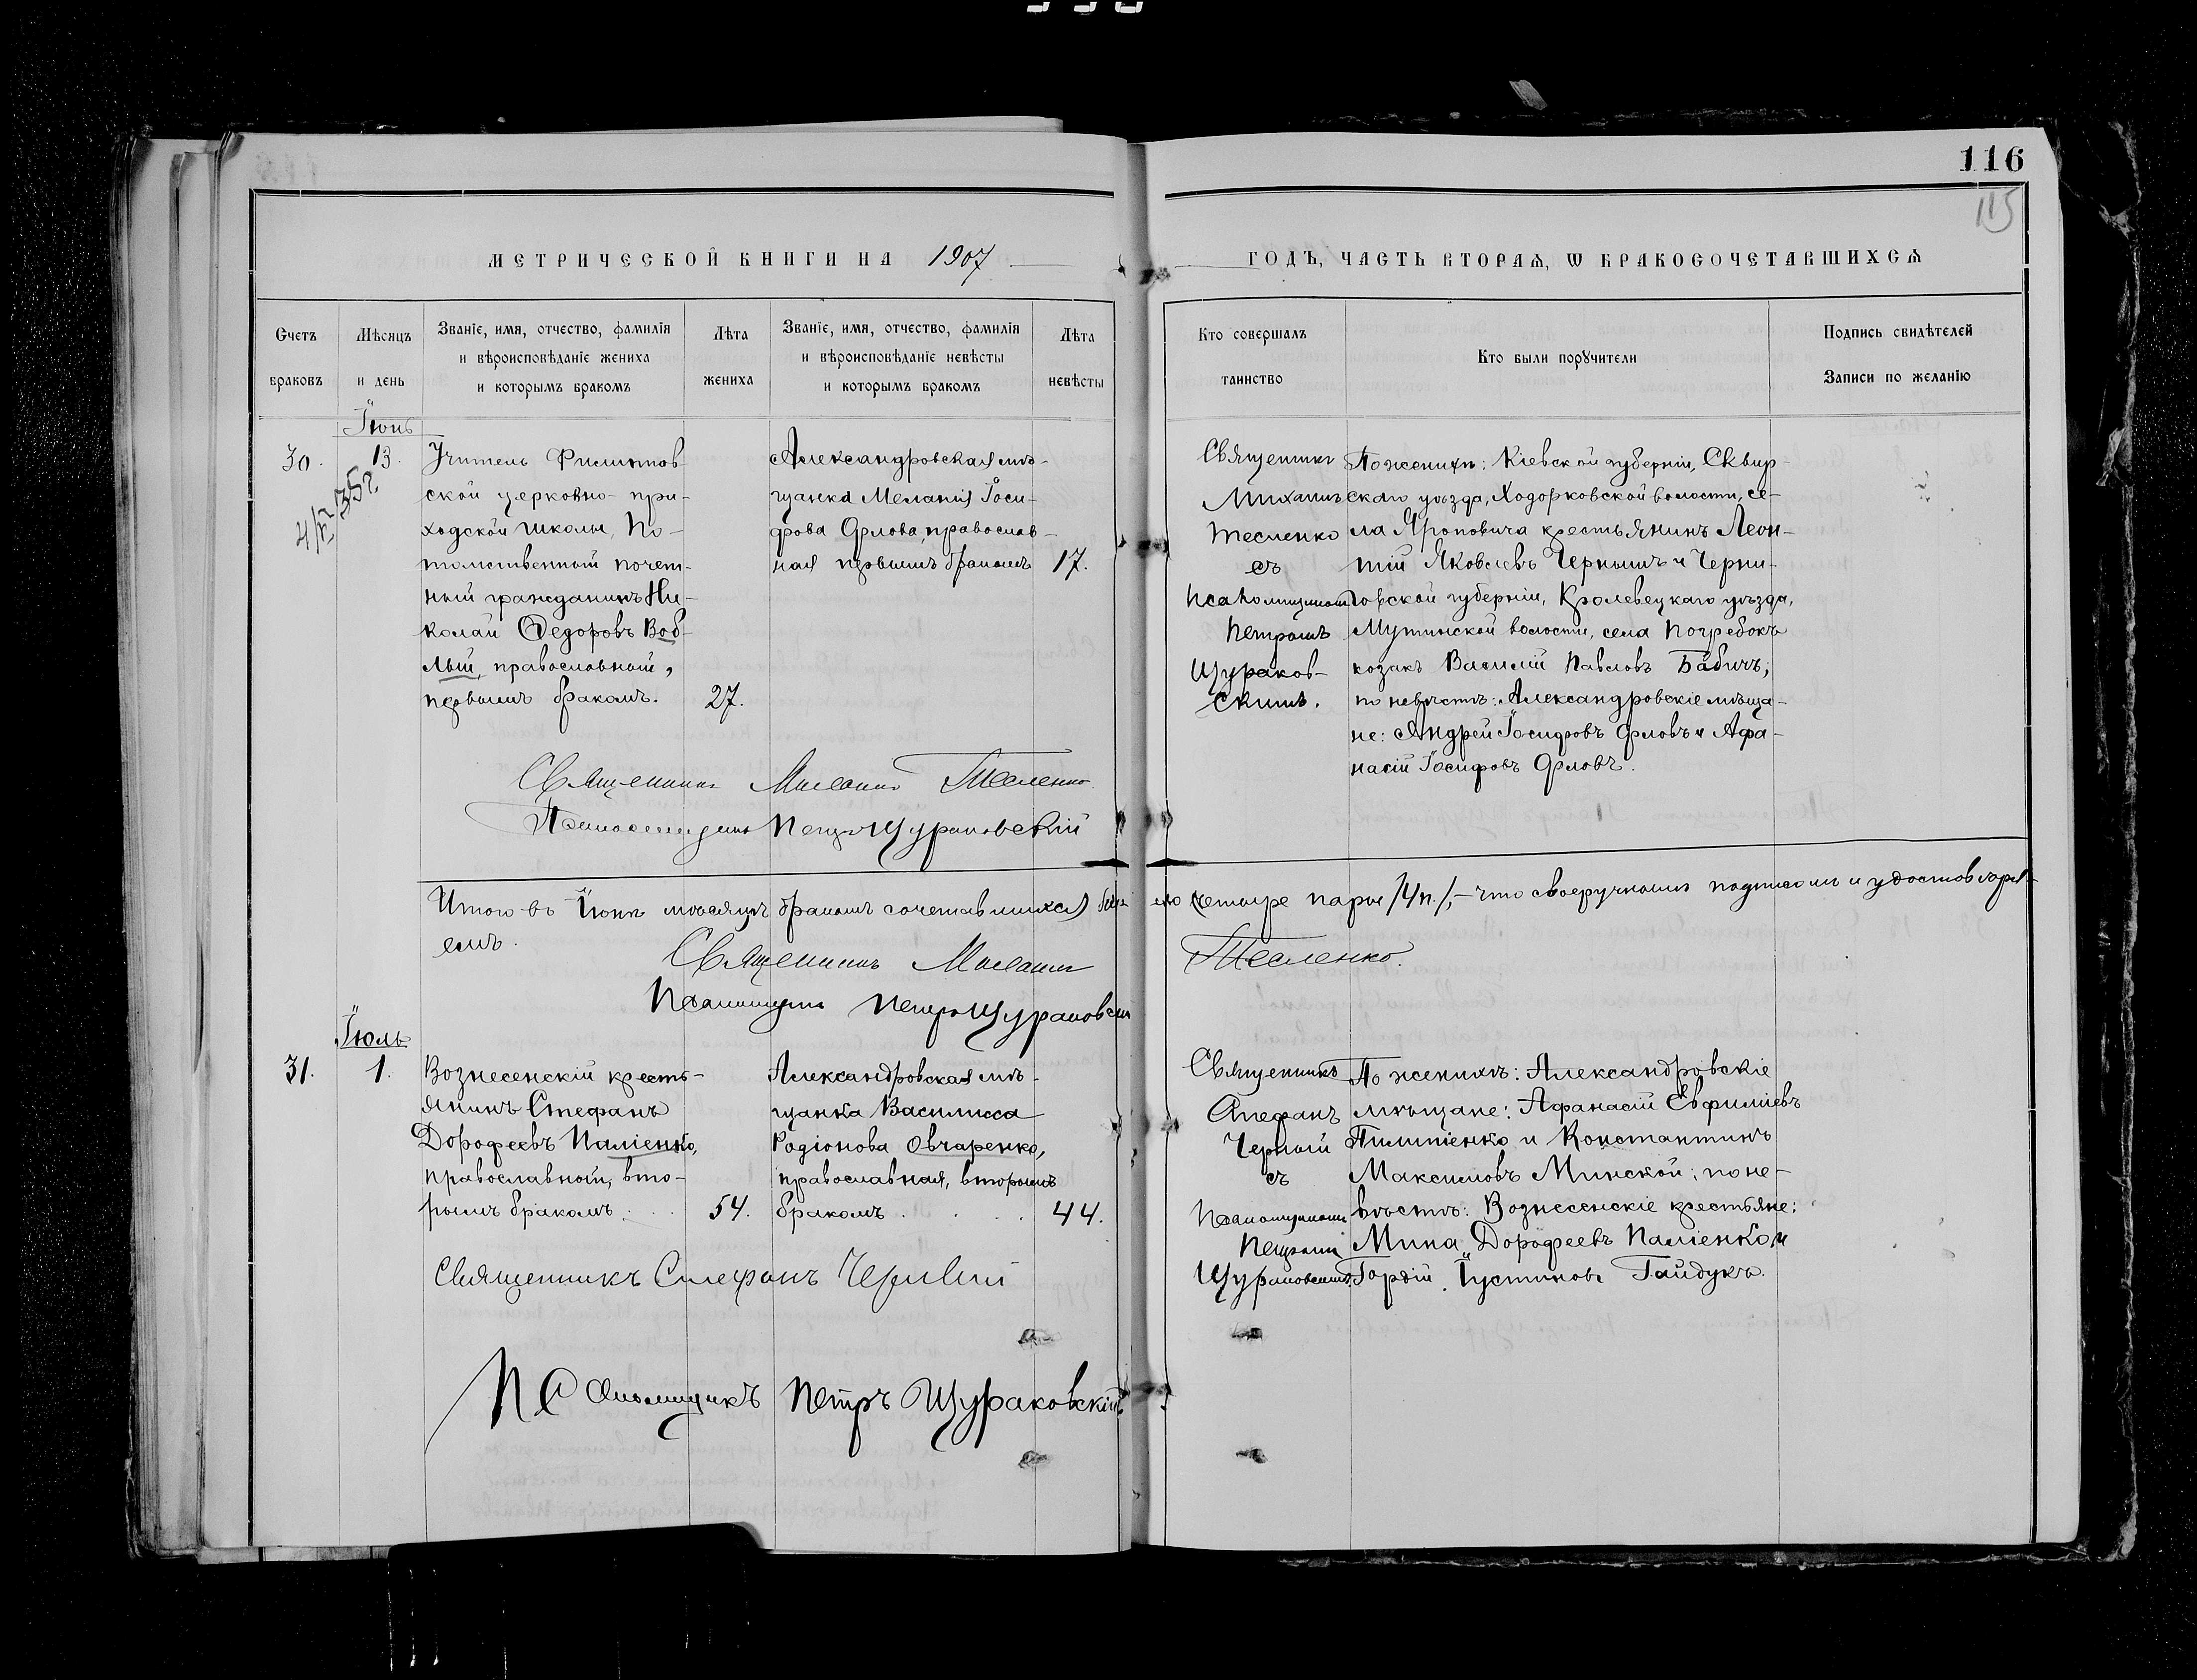 116
115
МЕТРИЧЕСКОЙ КНИГИ НА 1907
ГОДЪ, ЧАСТЬ ВТОРАѦ, Ѡ БРАКОСОЧЕТАВШИХСѦ
Счетъ браковъ
Мѣсяцъ и день
Званіе, имя, отчество, фамилія
и вѣроисповѣданіе жениха
и которымъ бракомъ
Лѣта жениха
Званіе, имя, отчество, фамилія
и вѣроисповѣданіе невѣсты
и которымъ бракомъ
Лѣта невѣсты
Кто совершалъ таинство
Кто были поручители
Подпись свидѣтелей
Записи по желанію
Іюнь
30.
13.
Учитель
ской церковно-при-
ходской школы, По-
томственный почет-
ный гражданинъ Ни-
колай Федоровъ Воб-
лый, православный,
первымъ бракомъ.
27.
Александровская мѣ-
щанка Меланія Іоси-
фова Орлова, православ-
ная первымъ бракомъ
17.
Священникъ
Михаилъ
Тесленко
съ
Псаломщикомъ
Петромъ
Щураков-
скимъ.
По женихѣ: Кіевской губерніи, Сквир-
скаго уѣзда, Ходорковской волости, се-
ла Яроповича крестьянинъ Леон-
тій Яковлевъ Чернышъ и Черни-
говской губерніи, Кролевецкаго уѣзда,
Мутинской волости, села Погребокъ
козакъ Василій Павловъ Бабичъ;
по невѣстѣ: Александровскіе мѣща-
не: Андрей Іосифовъ Орловъ и Афа-
насій Іосифовъ Орловъ.
Священникъ Михаилъ Тесленко.
Псаломщикъ Петръ Щураковскій
Итого въ Іюнѣ мѣсяцѣ бракомъ сочетавшихся было четыре пары /4 п./, - что своеручнымъ подписомъ и удостовѣря-
емъ.
Священникъ Михаилъ Тесленко.
Псаломщикъ Петръ Щураковскій
Іюль
31.
1.
Вознесенскій кресть-
янинъ Стефанъ
Дорофеевъ Паліенко,
православный, вто-
рымъ бракомъ.
54.
Александровская мѣ-
щанка Василисса
Родіонова Овчаренко,
православная, вторымъ
бракомъ
44.
Священникъ
Стефанъ
Черный
съ
Псаломщикомъ
Петромъ
Щураковскимъ.
По женихѣ: Александровскіе
мѣщане: Афанасій Евфиміевъ
Пилипіенко и Константинъ
Максимовъ Минской; по не-
вѣстѣ: Вознесенскіе крестьяне:
Мина Дорофеевъ Паліенко и
Гордій Іустиновъ Гайдукъ.
Священникъ Стефанъ Черный
Псаломщикъ Петръ Щураковскій